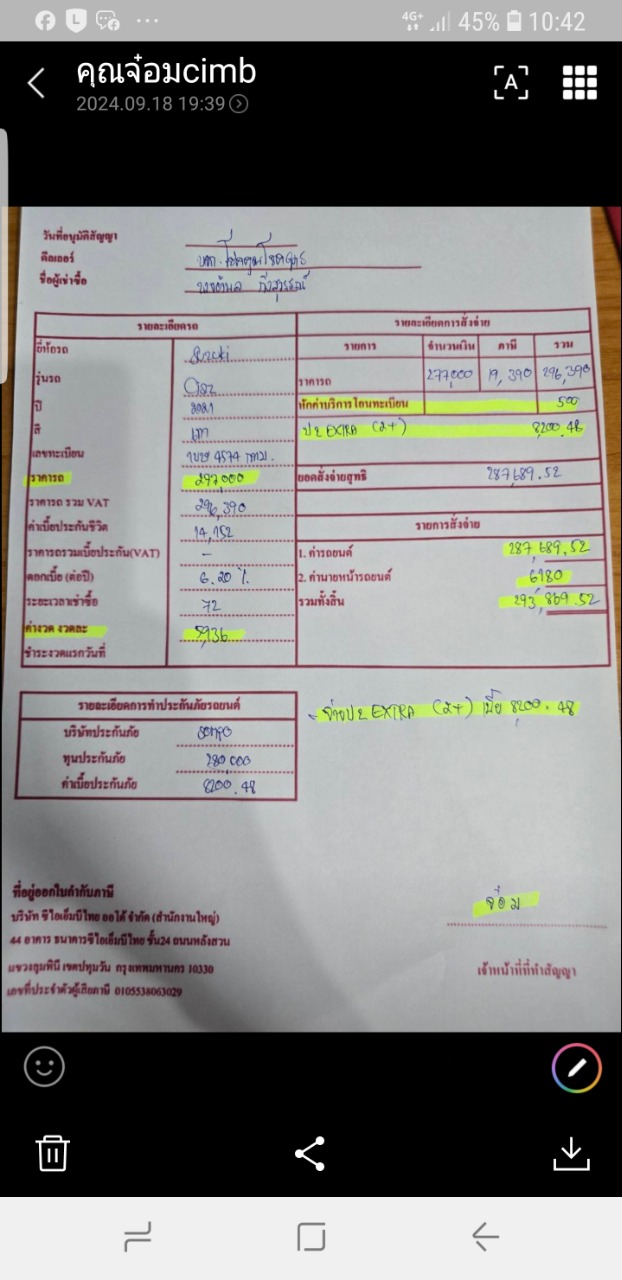 4G+ 45% 10:42
คุณจ๋อมcimb
2024.09.18 19:39
วันที่อนุมัติสัญญา
ดีลเลอร์
ชื่อผู้เช่าซื้อ
รายละเอียดรถ
ยี่ห้อรถ Suzuki
รุ่นรถ Ciaz
ปี 2021
สี เทา
เลขทะเบียน 4574 กทม.
ราคารถ 297,000
ราคารถ รวม VAT 296,390
ค่าเบี้ยประกันชีวิต 14,152
ราคารถรวมเบี้ยประกัน(VAT) -
ดอกเบี้ย (ต่อปี) 6.20 %
ระยะเวลาเช่าซื้อ 72
ค่างวด งวดละ 5,936
ชำระงวดแรกวันที่
รายละเอียดการสั่งจ่าย
รายการ จำนวนเงิน ภาษี รวม
ราคารถ 277,000 19,390 296,390
หักค่าบริการโอนทะเบียน 500
ปε EXTRA (2+) 8,200.48
ยอดสั่งจ่ายสุทธิ 287,689.52
รายการสั่งจ่าย
1. ค่ารถยนต์ 287,689.52
2. ค่านายหน้ารถยนต์ 6,180
รวมทั้งสิ้น 293,869.52
รายละเอียดการทำประกันภัยรถยนต์
บริษัทประกันภัย sompo
ทุนประกันภัย 280,000
ค่าเบี้ยประกันภัย 8200.48
EXTRA (2+) เบี้ย 8,200.48
ที่อยู่ออกใบกำกับภาษี
บริษัท ซีไอเอ็มบีไทย ออโต้ จำกัด (สำนักงานใหญ่)
44 อาคาร ธนาคารซีไอเอ็มบีไทย ชั้น24 ถนนหลังสวน
แขวงลุมพินี เขตปทุมวัน กรุงเทพมหานคร 10330
เลขที่ประจำตัวผู้เสียภาษี 0105538063029
จ๋อม
เจ้าหน้าที่ที่ทำสัญญา